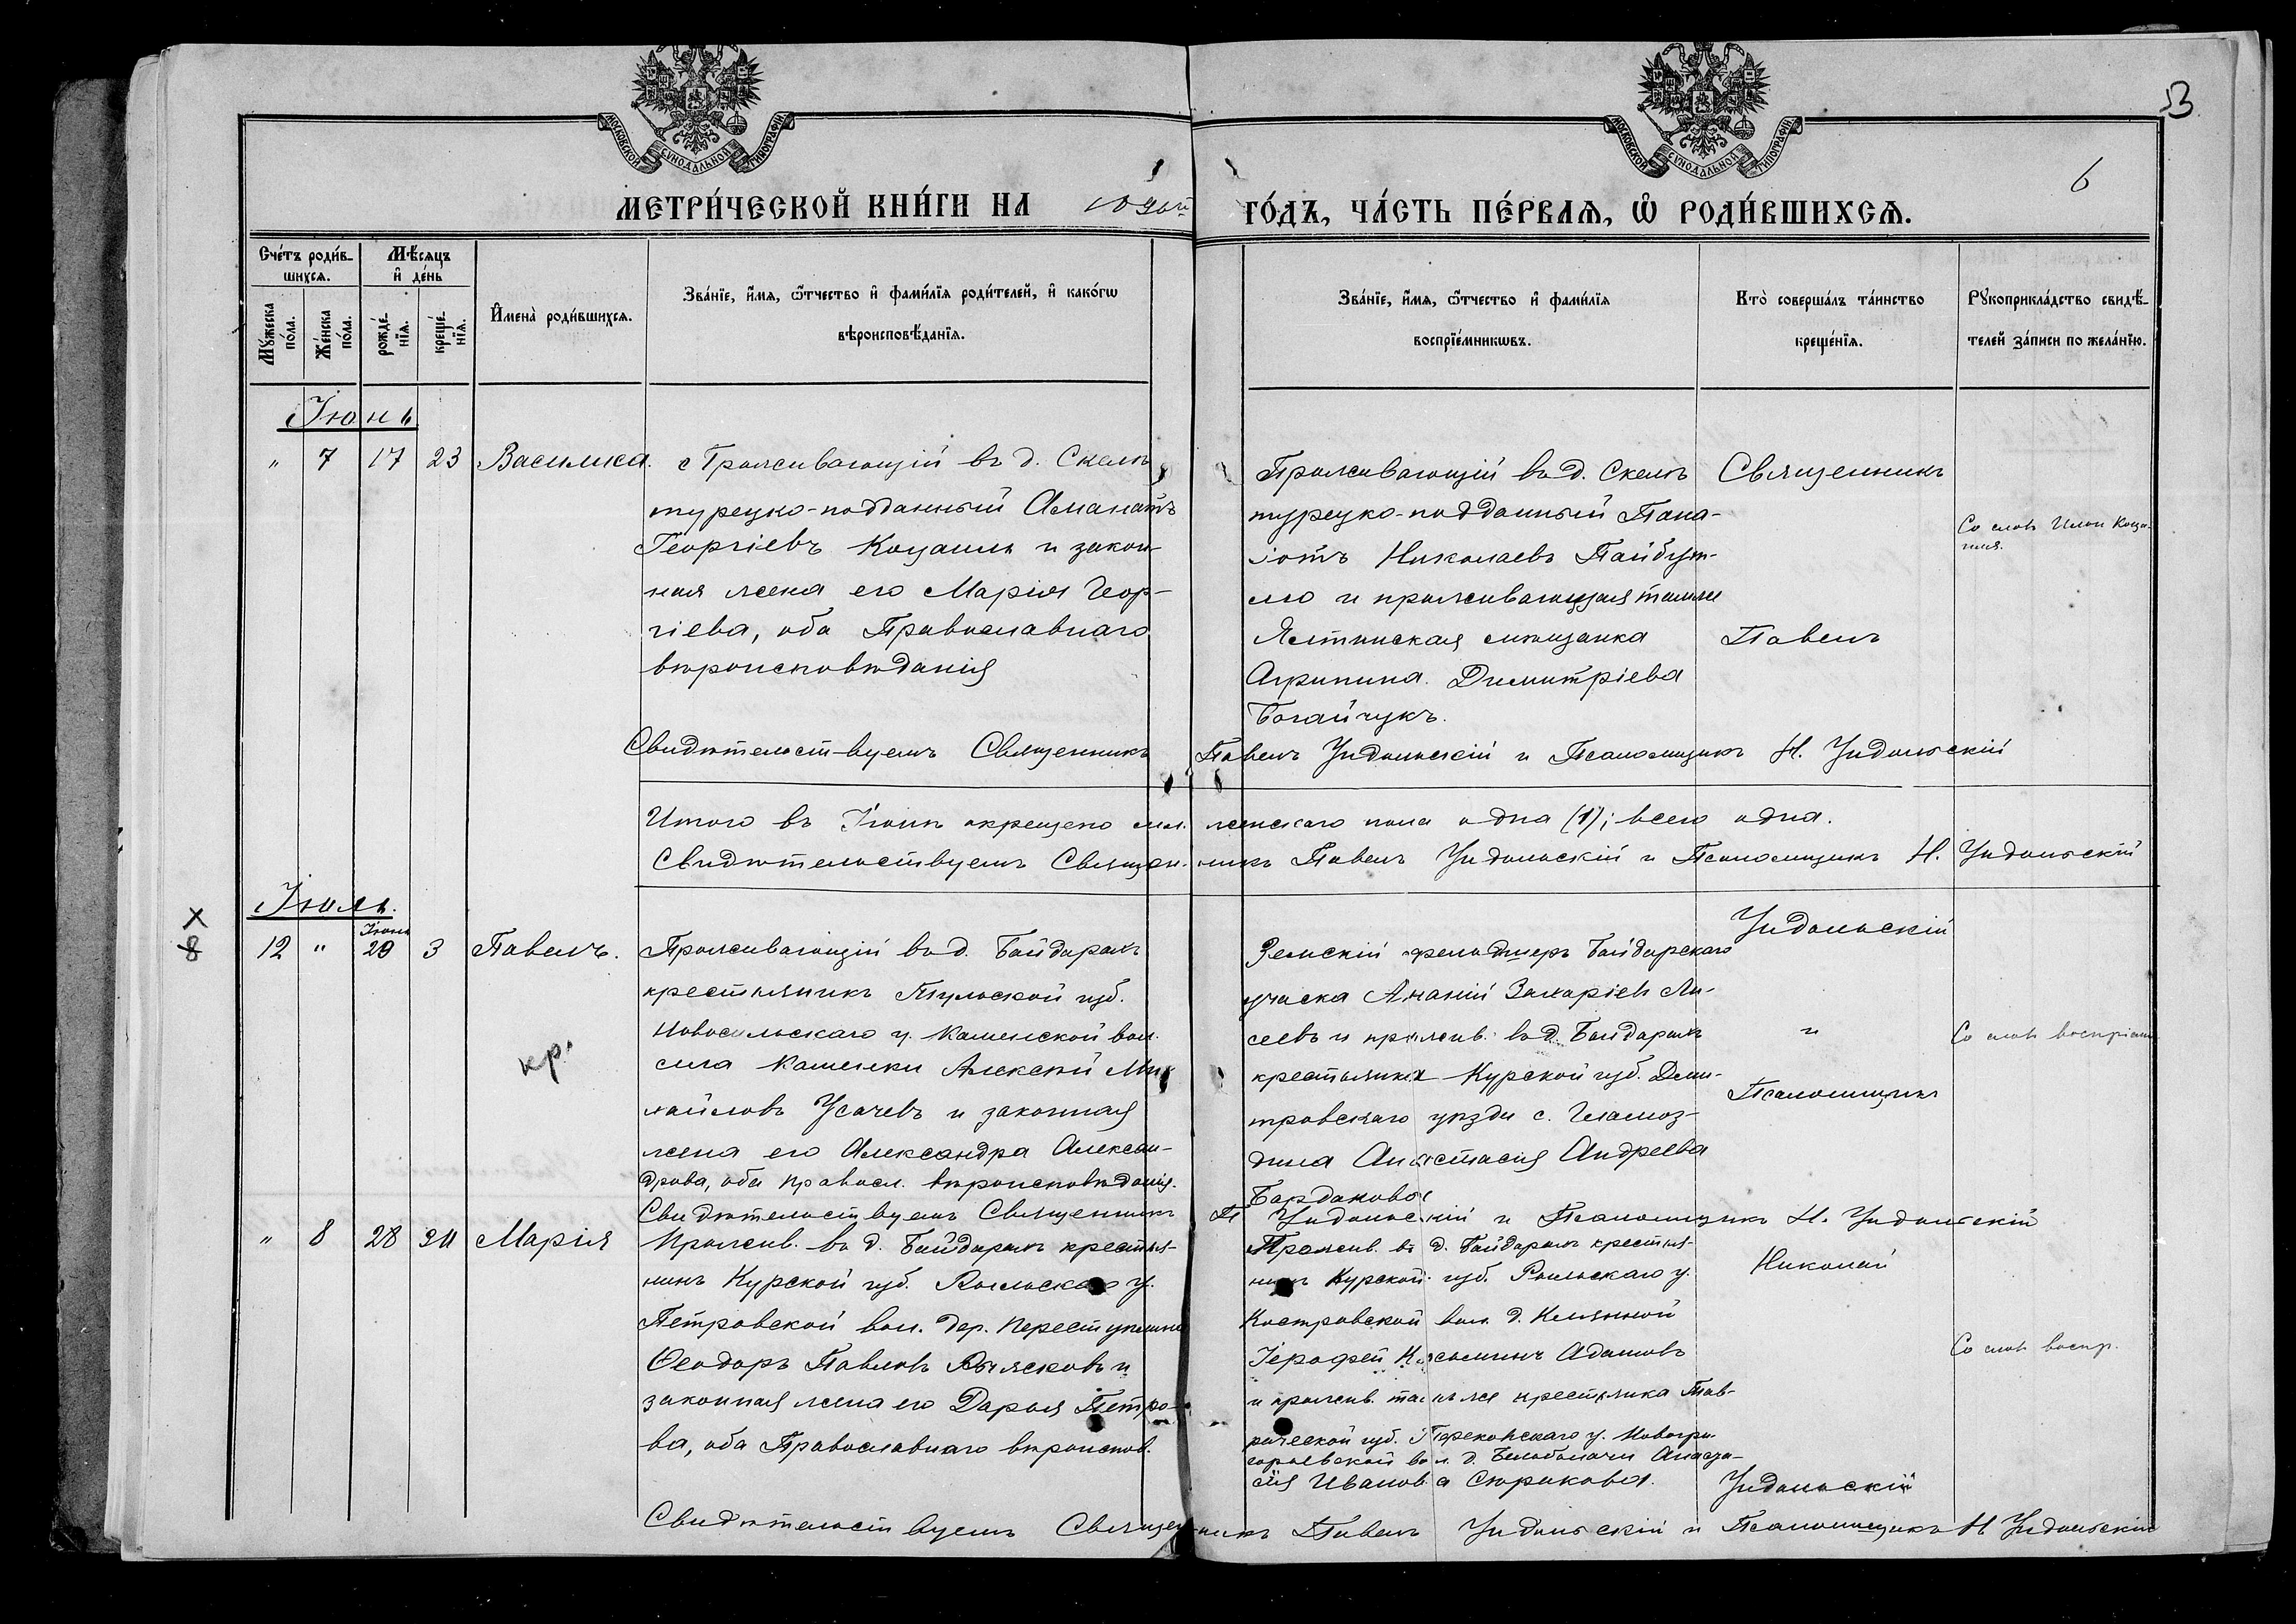 МОСКОВСКОЙ СѴНОДАЛЬНОЙ ТИПОГРАФІИ
МОСКОВСКОЙ СѴНОДАЛЬНОЙ ТИПОГРАФІИ
6
МЕТРИ́ЧЕСКОЙ КНИ́ГИ НА
ГО́ДЪ, ЧА́СТЬ ПЕ́РВАѦ, Ѡ҆ РОДИ́ВШИХСѦ.
Сче́тъ роди́в-
шихсѧ.
Мѣ́сѧцъ
и҆ де́нь
Мꙋ́жеска по́ла.
Же́нска по́ла.
рожде́-
нїѧ.
креще́-
нїѧ.
И҆мена̀ роди́вшихсѧ.
Зва́нїе, и҆́мѧ, ѻ҆́тчество и҆ фами́лїѧ роди́телей, и҆ како́гѡ
вѣроисповѣ́данїѧ.
Зва́нїе, и҆́мѧ, ѻ҆́тчество и҆ фами́лїѧ
воспрїе́мникѡвъ.
Кто̀ соверша́лъ та́инство
креще́нїѧ.
Рꙋкоприкла́дство свидѣ́-
телей за́писи по жела́нїю.
Іюнь
" 7 17 23 Василиса. Проживающій въ д. Скели
турецко-подданный Аманатъ
Георгіевъ и закон-
ная жена его Марія Геор-
гіева, оба Православнаго
вѣроисповѣданія
Проживающій въ д. Скели
турецко-подданный Пана-
іотъ Николаевъ
и проживающая тамже
Ялтинская мѣщанка
Агрипина Димитріева
Богайчукъ.
Священникъ
Павелъ
Со словъ
Свидѣтельствуемъ Священникъ Павелъ Ундольскій и Псаломщикъ Н. Ундольскій
Итого въ Іюнѣ окрещено женскаго пола одна (1); всего одна.
Свидѣтельствуемъ Священникъ Павелъ Ундольскій и Псаломщикъ Н. Ундольскій
Іюль.
X
8
Іюня
12 " 29 3 Павелъ. Проживающій въ д. Байдарахъ
крестьянинъ Тульской губ.
Новосильскаго у. Каменской вол.
села Каменки Алексѣй Ми-
хайловъ Усачевъ и законная
жена его Александра Алексан-
дрова, оба правосл. вѣроисповѣданія.
кр.
Земскій фельдшеръ Байдарскаго
учаска Ананій Захаріевъ Ли-
сеевъ и прожив. въ д. Байдарахъ
крестьянка Курской губ. Дми-
тровскаго уѣзда с. Гламоз-
дина Анастасія Андреева
Бардакова
Ундольскій
и
Псаломщикъ
Со словъ
Свидѣтельствуемъ Священникъ П Ундольскій и Псаломщикъ Н. Ундольскій
" 8 28 Марія Прожив. въ д. Байдарахъ крестья-
нинъ Курской губ. Рыльскаго у.
Петровской вол. дер.
Ѳеодоръ Павловъ и
законная жена его Дарья Петро-
ва, оба Православнаго вѣроиспов.
Прожив. въ д. Байдарахъ крестья-
нинъ Курской губ. Рыльскаго у.
вол. д.
Іерофей Адамовъ
и прожив. тамъ же крестьянка Тав-
рической губ. Перекопскаго у. Новогри-
горьевской вол. д. Анаста-
сія Иванова Сюрикова.
Николай
Ундольскій
Со словъ воспр.
Свидѣтельствуемъ Священникъ Павелъ Ундольскій и Псаломщикъ Н Ундольскій